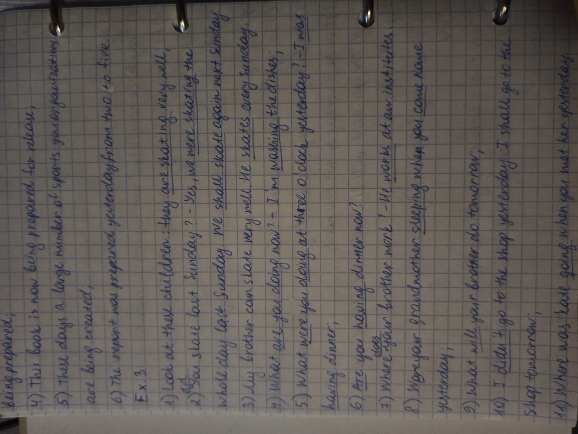 being prepared;
4) This book is now being prepared for release;
5) These days a large number of sports youorganizations
are being created;
6) The report was prepared yesterday from two to five.
Ex 3
1) Look at those children: they are skating very well;
2) Did You skate last Sunday? - Yes, we were skating the
whole day last Sunday. We shall skate again next Sunday
3) My brother can skate very well. He skates every Sunday.
4) What are you doing now? - I'm washing the dishes;
5) What were you doing at three o'clock yesterday? - I was
having dinner;
6) Are you having dinner now?
7) Where does your brother work? - He works at an institutes
8) Were your grandmother sleeping when you came home
yesterday;
9) What will your brother do tomorrow;
10) I didn't go to the shop yesterday. I shall go to the
shop tomorrow;
11) Where was have going when you met her yesterday